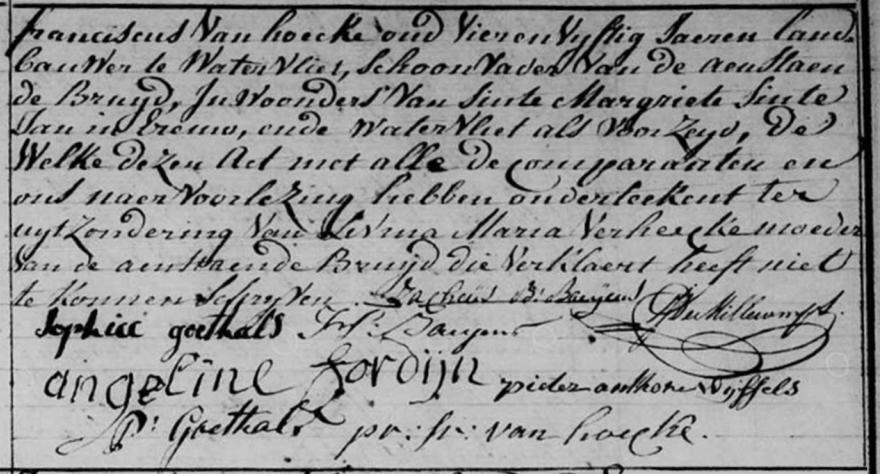 franciscus Van hoecke oud Vieren Vyftig Jaeren land-
bauwer te WaterVliet, Schoon Vader Van de aenstaen
de Bruyd, Inwoonders Van Sinte Margriete Sinte
Jan in Eremo, ende WaterVliet als Voorzeyd, De
Welke dezen Act met alle de Comparanten en
ons naer Voorlezing hebben onderteekent ter
uytzondering Van Livina Maria Verheecke moeder
Van de aenstaende Bruyd die Verklaert heeft niet
te konnen Schryven.
Sophie goethals
angeline fordijn pieter anthone Wyffels
Pr Goethals pr: fr: van hoecke.